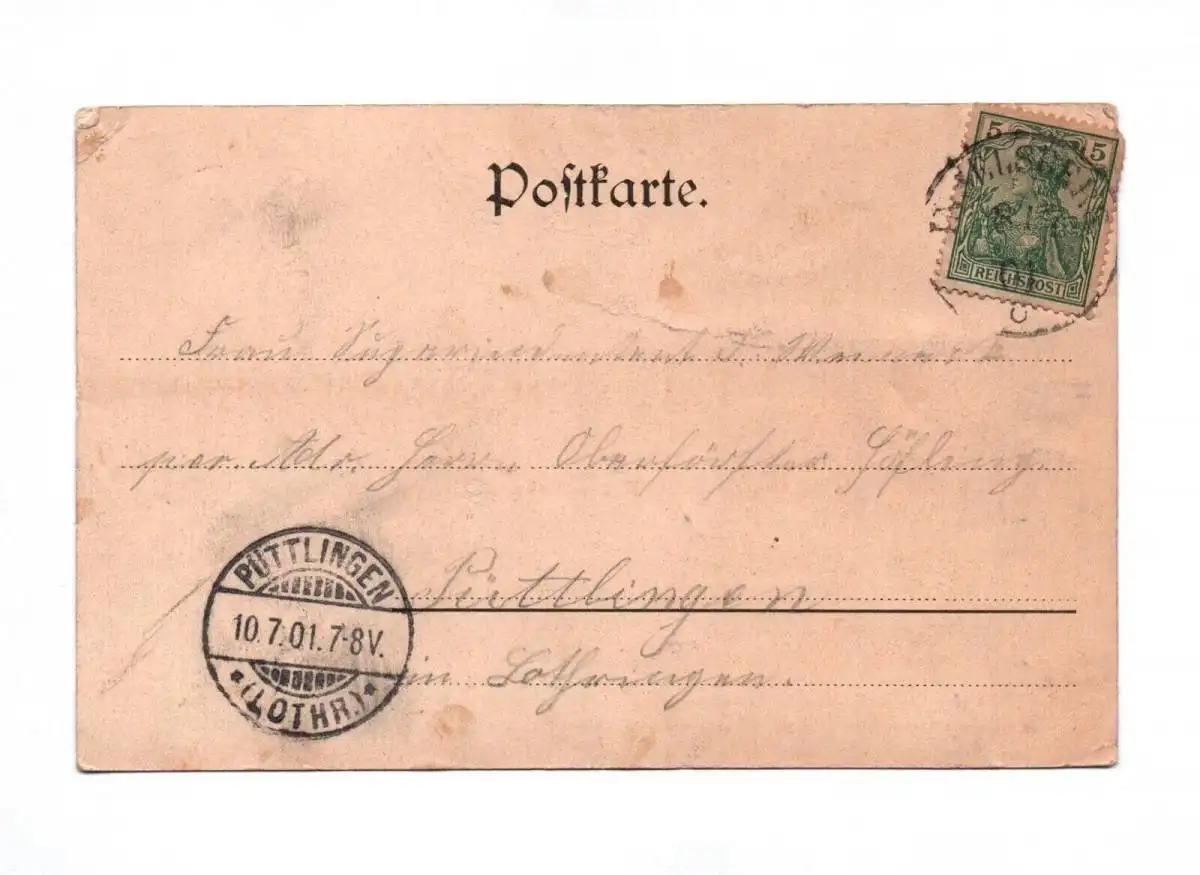 Postkarte.
5 5
REICHSPOST
Frau
per. Adr. Herrn Oberförster
Püttlingen
in Lothringen.
PÜTTLINGEN
10.7.01.7-8V.
*(LOTHR.)*